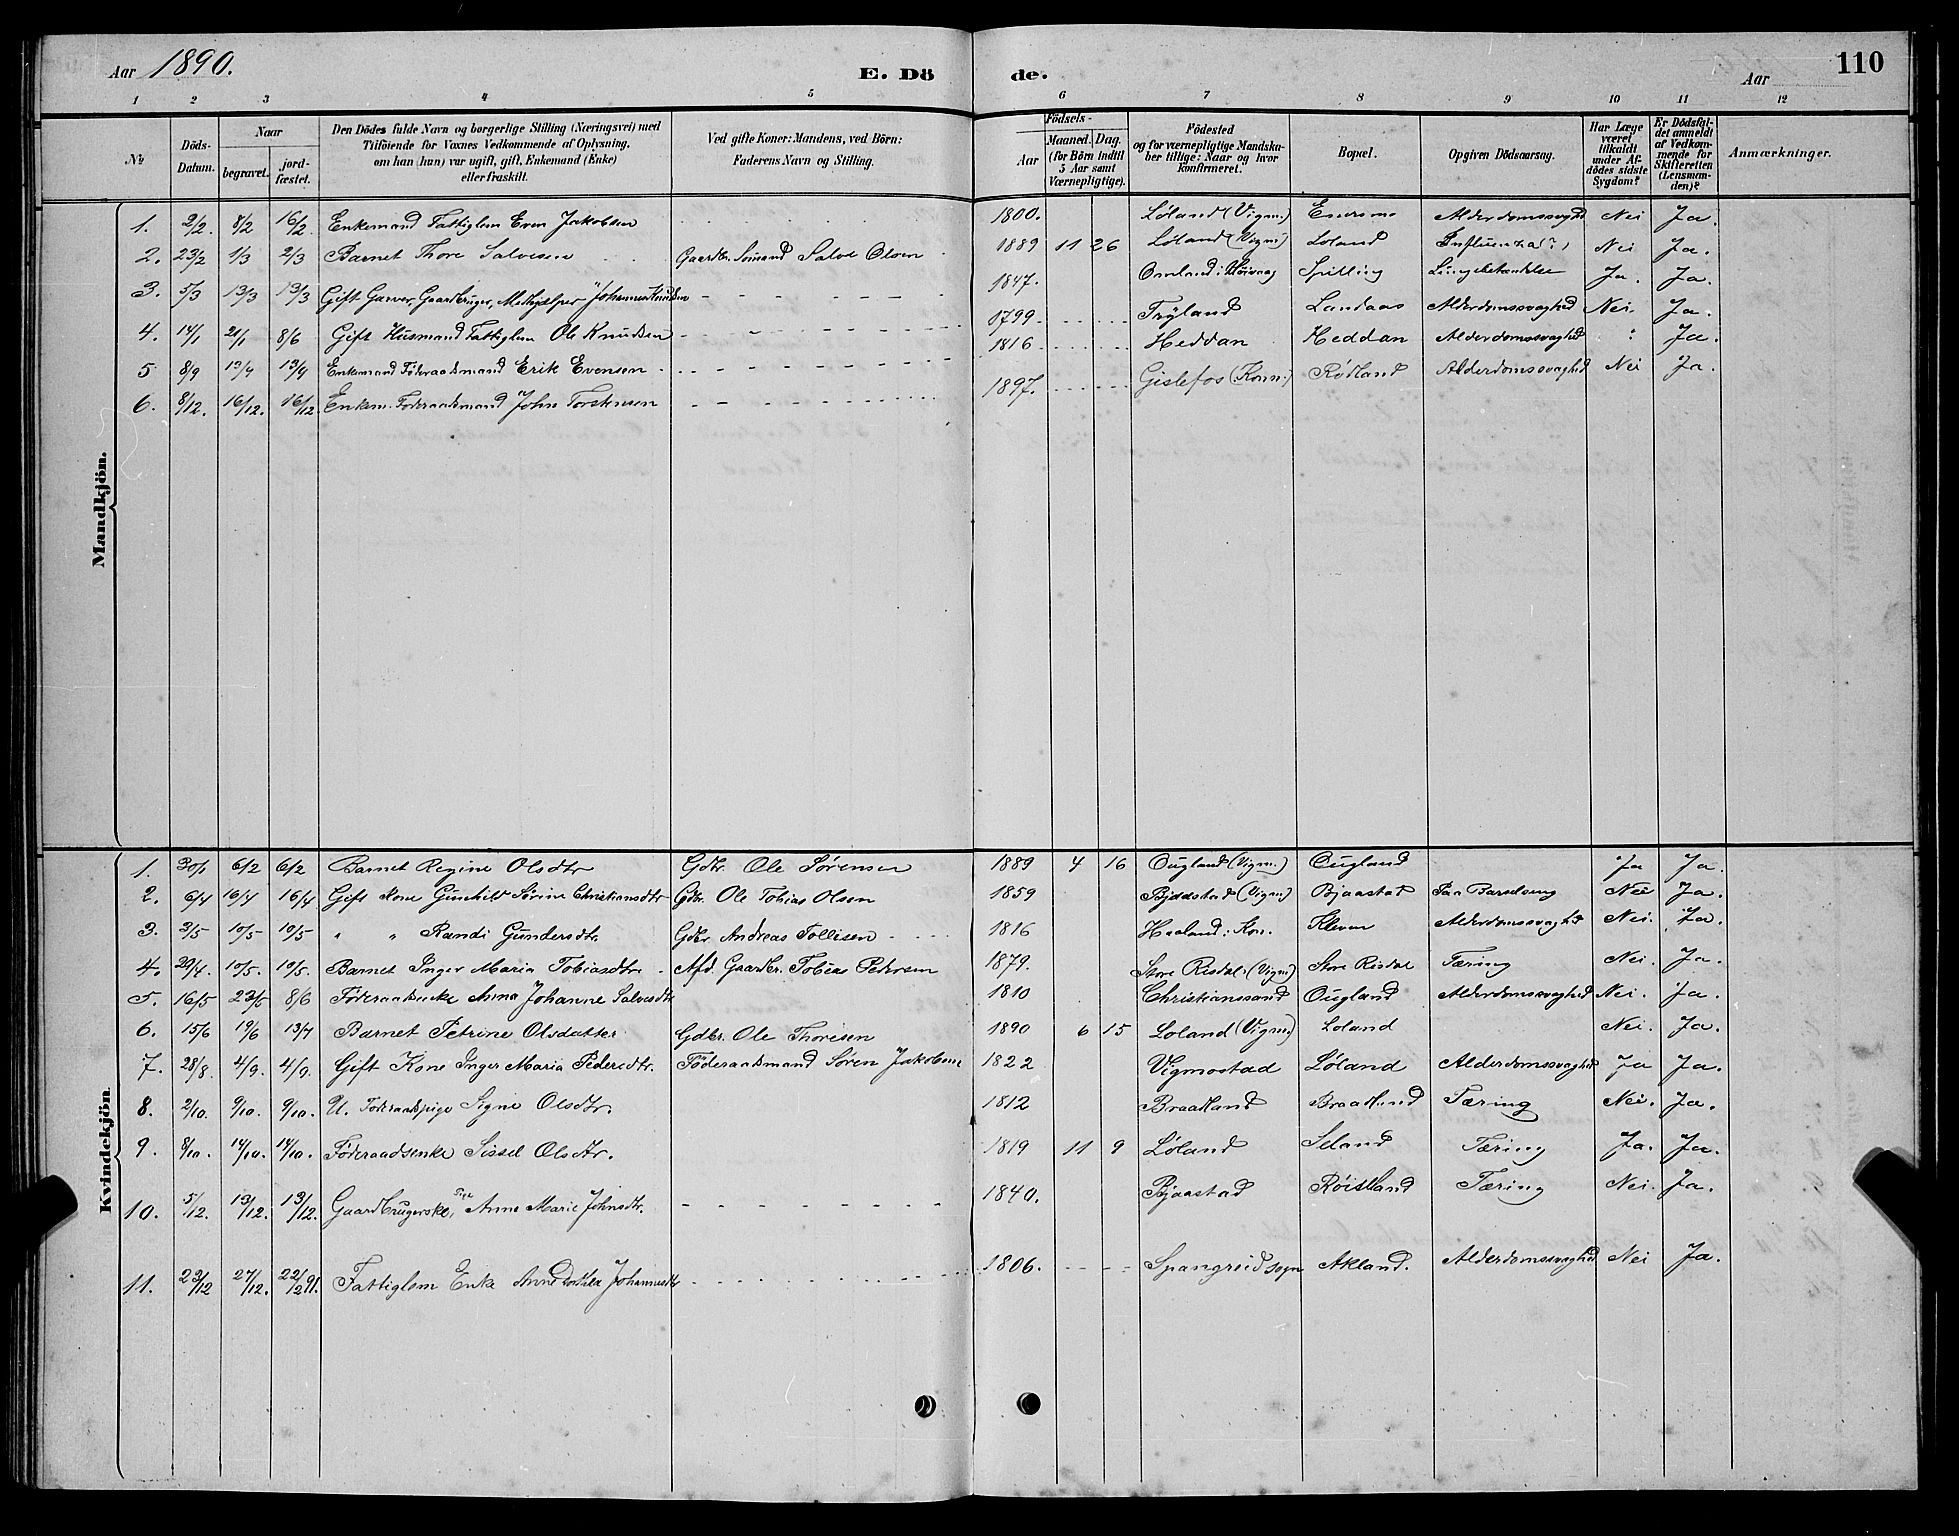 Aar 1890. E. Dö de. Aar 110
1 2 3 4 5 6 7 8 9 10 11 12
No
Döds-Datum.
Naar
begravet.
jord-fæstet.
Den Dödes fulde Navn og borgerlige Stilling (Næringsvei) med
Tilföiende for Voxnes Vedkommende af Oplysning,
om han (hun) var ugift, gift, Enkemand (Enke)
eller fraskilt.
Ved gifte Koner: Mandens, ved Börn:
Faderens Navn og Stilling.
Födsels-
Aar
Maaned. Dag.
(for Börn indtil
5 Aar samt
Værnepligtige).
Födested
og for værnepligtige Mandska-
ber tillige: Naar og hvor
konfirmeret.
Bopæl.
Opgiven Dödsaarsag.
Har Læge
været
tilkaldt
under Af-
dödes sidste
Sygdom?
Er Dödsfal-
det anmeldt
af Vedkom-
mende for
Skifteretten
(Lensman-
den)?
Anmærkninger.
Mandkjön.
1. 2/2. 8/2 16/2 Enkemand Fattiglem Even Jakobsen 1800. Løland (Vigm.) Alderdomssvaghed Nei Ja.
2. 23/2 1/3 2/3 Barnet Thore Salvesen Gaardbr. Somand Salve Olsen 1889 11 26 Løland (Vigm) Loland Influenza (?) Nei Ja.
3. 5/3 13/3 13/3 Gift Garver, Gaardbruger, Medhjælper Johannes Knudsen 1847. Omland i Høivaag Spilling Ja. Ja.
4. 14/1 21/1 8/6 Gift Husmand Fattiglem Ole Knudsen 1799 Tryland Landaas Alderdomssvaghed Nei. Ja.
5 8/9 13/9 13/9 Enkemand Föderaadsmand Erik Evensen 1816 Heddan Heddan Alderdomssvaghed " Ja.
6. 8/12. 16/12. 16/12 Enkem. Foderaadsmand John Torstensen 1897. Gislefos (Konn.) Rødland Alderdomssvaghed Nei Ja.
Kvindekjön
1. 30/1 6/2 6/2 Barnet Regine Olsdtr Gdbr. Ole Sørensen 1889 4 16 Ougland (Vigm.) Ougland Ja Ja.
2. 6/4 16/4 16/4 Gift Kone Gunhild Sörine Christiansdtr Gdbr. Ole Tobias Olsen 1859 Bjaastad (Vigm) Bjaastad Paa Barselseng Nei Ja.
3. 3/5 10/5 10/5 " " Randi Gundersdtr. Gdbr. Andreas Tollisen 1816 Haaland i Kon. Kleven Alderdomssvaghed Nei. Ja.
4. 29/4. 10/5. 10/5. Barnet Inger Maria Tobiasdtr. Afd. Gaardbr. Tobias Pedersen 1879. Store Risdal (Vigm) Store Risdal Tæring Nei. Ja.
5. 16/5 23/5 8/6 Föderaadsenke Anna Johanne Salvesdtr 1810 Christianssand Ougland Alderdomssvaghed Nei. Ja.
6. 15/6 19/6 13/7 Barnet Petrine Olsdatter Gdbr. Ole Thoresen 1890 6 15 Loland (Vigm.) Loland Nei. Ja.
7. 28/8. 4/9. 4/9. Gift Kone Inger Maria Pedersdtr. Föderaadsmand Sören Jakobsen 1822 Vigmostad Løland Alderdomssvaghed Ja Ja.
8. 2/10. 9/10. 9/10. U. Foderaadspige Signe Olsdtr. 1812 Braadland Braadland Tæring Nei. Ja.
9. 8/10. 14/10. 14/10. Föderaadsenke Sissel Olsdtr. 1819 11 9 Løland Tæring Ja. Ja.
10. 5/12. 13/12. 13/12. Gaardbrugerske, Pige Anne Marie Johnsdtr. 1840. Bjaastad Röisland Tæring Nei. Ja.
11. 23/12 27/12. 22/2 91. Fattiglem Enke Anne Johannesdtr 1806. Spangreid sogn Akland. Alderdomssvaghed Nei Ja.